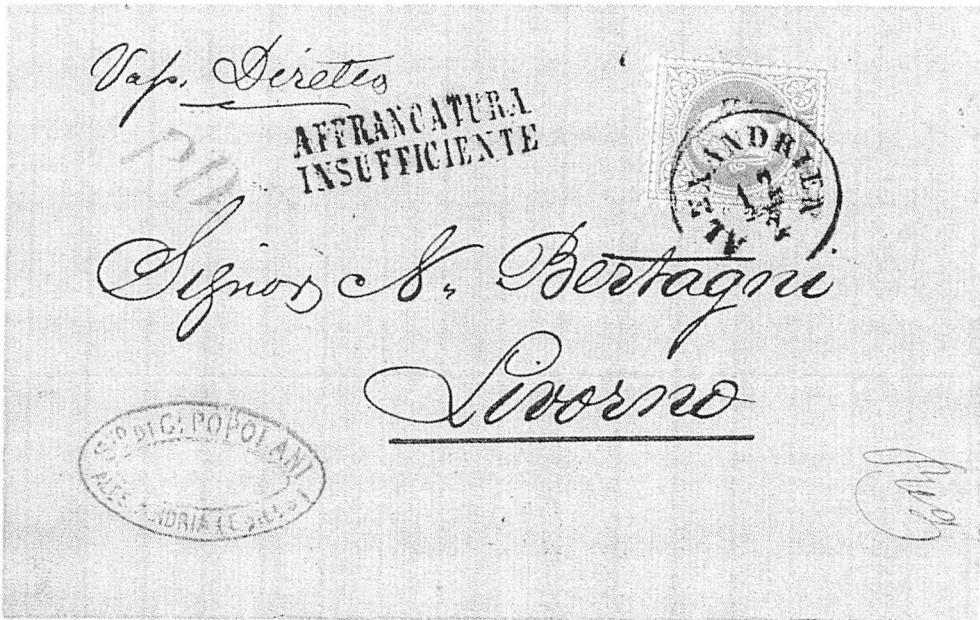 Vap. Diretto
AFFRANCATURA
INSUFFICIENTE
PD
ALEXANDRIEN
12
Signor N. Bertagni
Livorno
DI G. POPOLANI